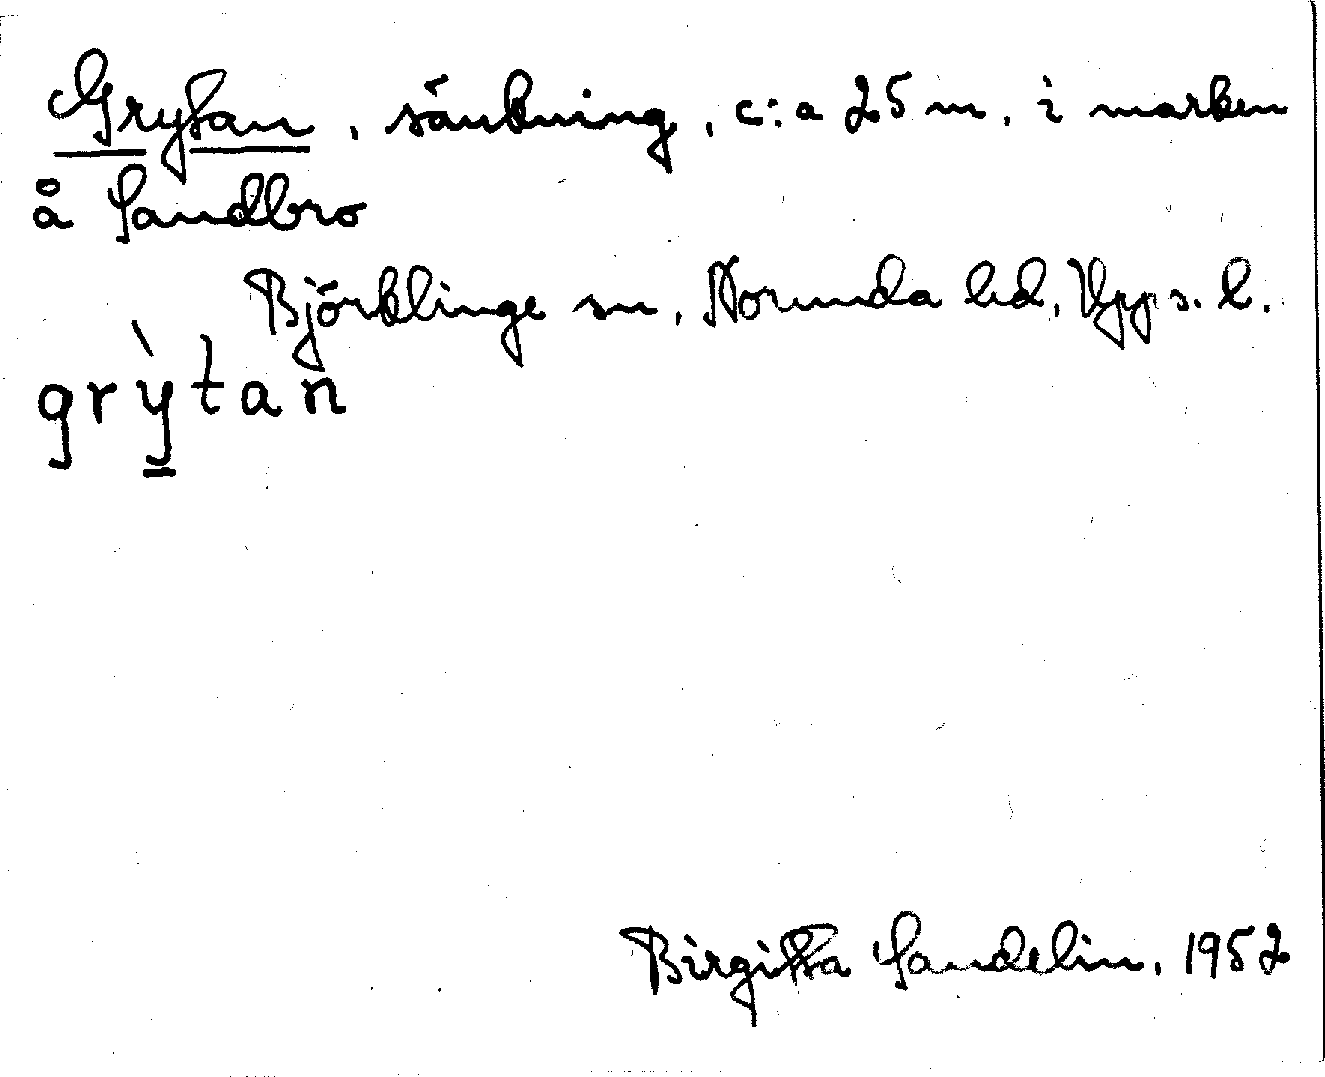 Grytan, sänkning, c:a 25 m, i marken
å Sandbro
Björklinge sn, Norunda hd, Upps. l.
grỳtan
Birgitta Sandelin, 1952